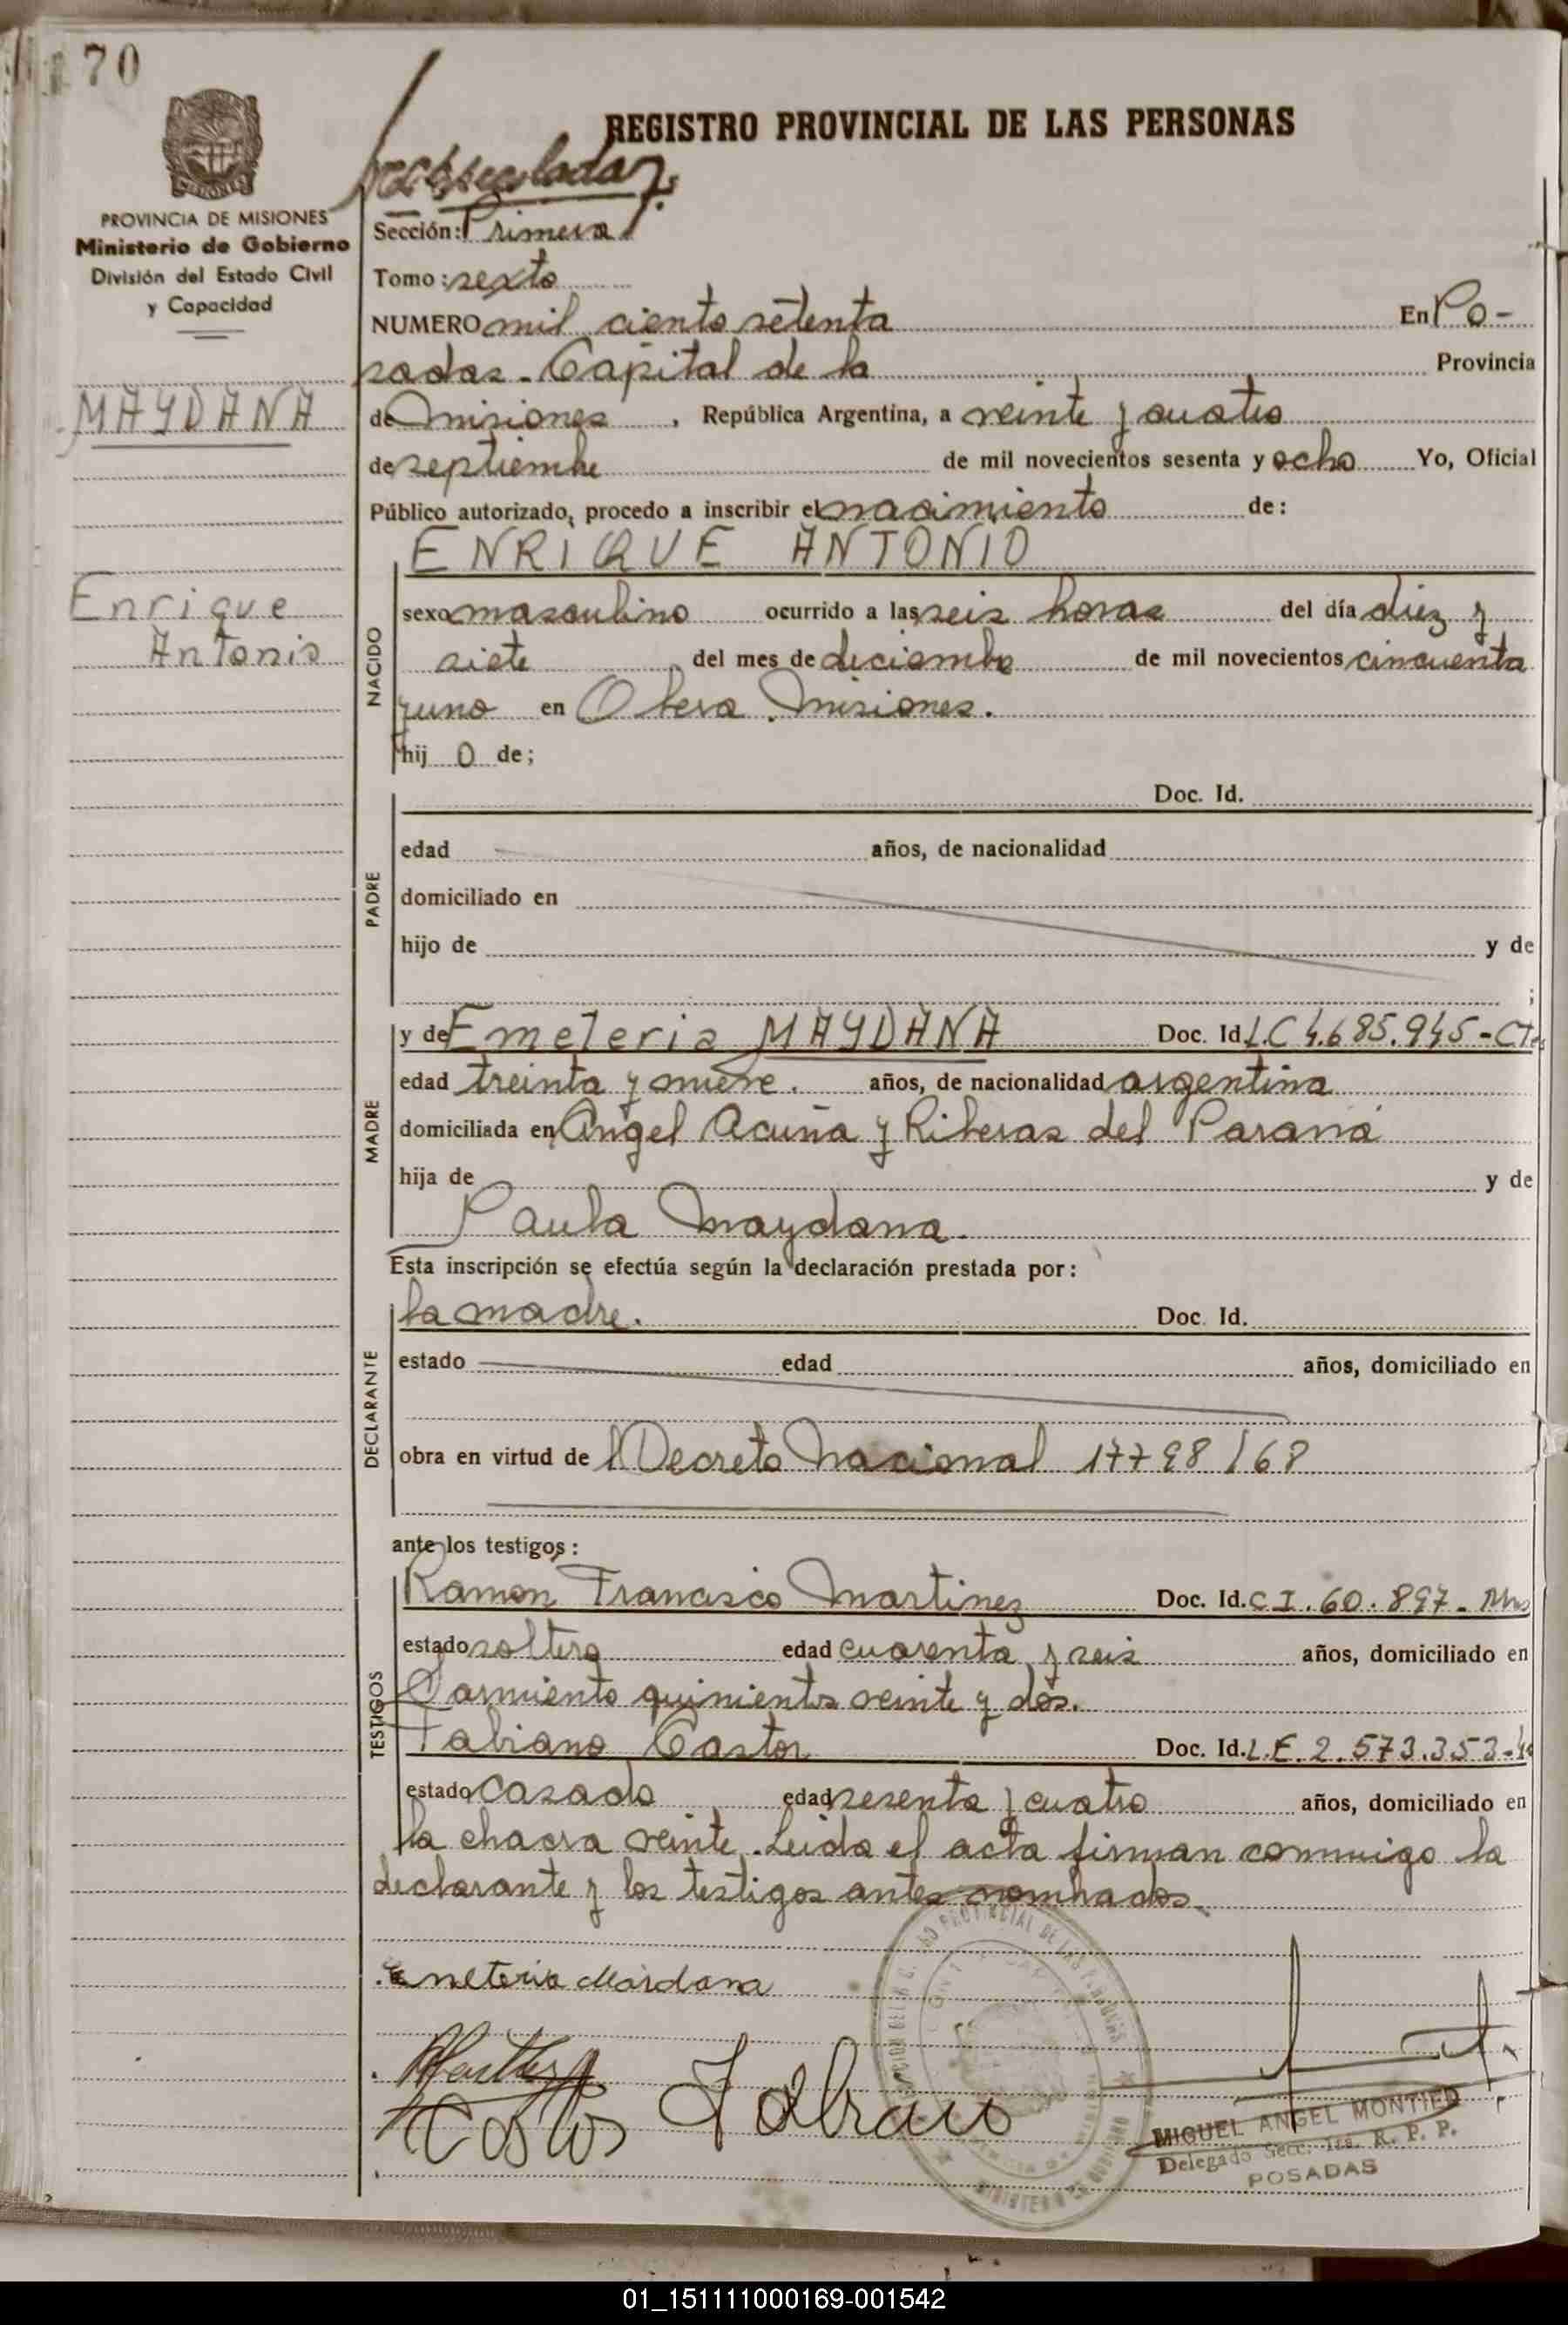 70
REGISTRO PROVINCIAL DE LAS PERSONAS
PROVINCIA DE MISIONES
Ministerio de Gobierno
División del Estado Civil
y Capacidad
Sección: Primera
Tomo: sexto
NUMERO mil ciento setenta En Po-
sadas. Capital de la Provincia
MAYDANA
de misiones, República Argentina, a veinte y cuatro
de septiembre de mil novecientos sesenta y ocho Yo, Oficial
Público autorizado, procedo a inscribir el nacimiento de:
ENRIQUE ANTONIO
Enrique
Antonio
NACIDO
sexo masculino ocurrido a las seis horas del día diez y
siete del mes de diciembre de mil novecientos cincuenta
y uno en Obera. Misiones.
hij o de;
PADRE
Doc. Id.
edad años, de nacionalidad
domiciliado en
hijo de y de
;
MADRE
y de Emeteria MAYDANA Doc. Id L.C 4.685.945-Ctes
edad treinta y nueve. años, de nacionalidad argentina
domiciliada en Angel Acuña y Riberas del Paraná
hija de y de
Paula Maydana.
Esta inscripción se efectúa según la declaración prestada por:
DECLARANTE
la madre. Doc. Id.
estado edad años, domiciliado en
obra en virtud de l Decreto Nacional 17798/68
ante los testigos:
TESTIGOS
Ramon Francisco Martinez Doc. Id. C I. 60. 897. Mns
estado soltero edad cuarenta y seis años, domiciliado en
Sarmiento quinientos veinte y dos.
Fabiano Castor Doc. Id. L.E. 2.573.353-
estado casado edad sesenta y cuatro años, domiciliado en
la chacra veinte. Leida el acta firman conmigo la
declarante y los testigos antes nombrados.
Emeteria Maidana
Fabiano
MIGUEL ANGEL MONTIEL
Delegado Secc. 1ra. R. P. P.
POSADAS
01_151111000169-001542